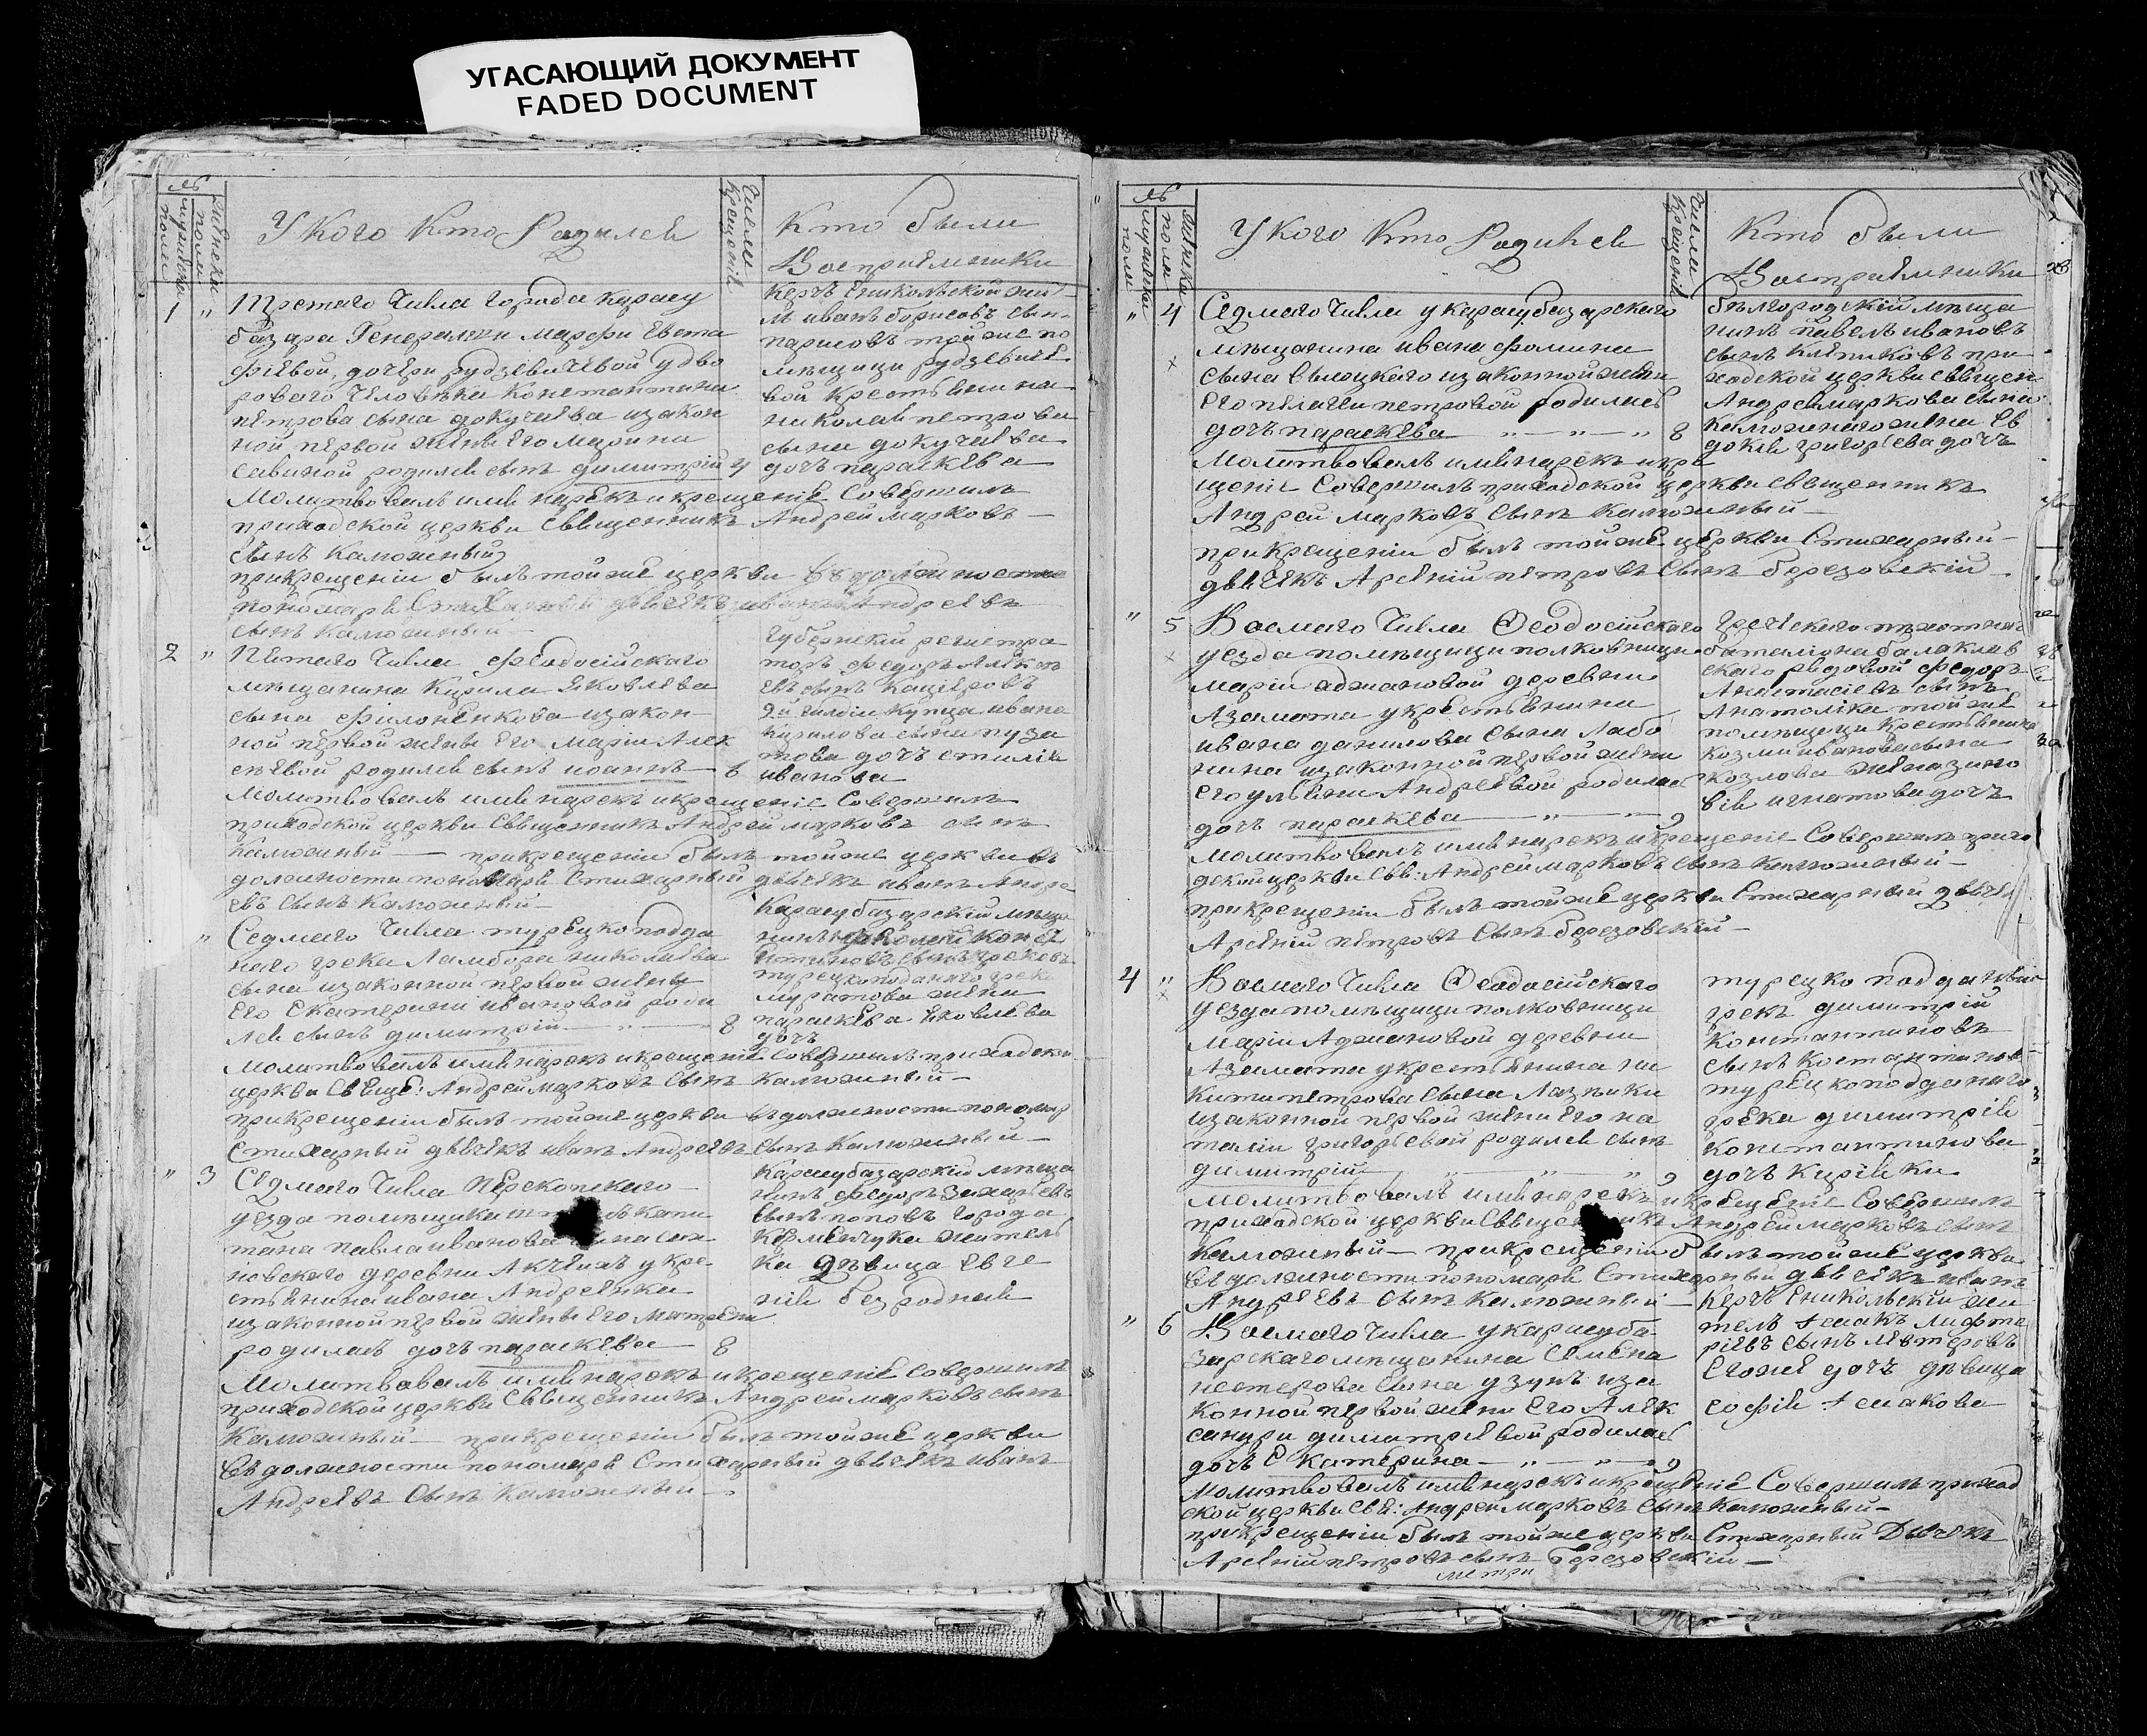 УГАСАЮЩИЙ ДОКУМЕНТ
FADED DOCUMENT
№
мужеска пола
женска пола
У кого кто родился
Числа крещенія
Кто были
Воспріемники
1 "
Третьяго числа города карасу
базара Генеральши марфи Евста
фіевой, дочери рудзевичевой удво
роваго человѣка константина
петрова сына докучаева изакон
ной первой жены его марина
савиной родился сынъ димитрій 4
Керчъ Еникольской жи
ль иванъ борисовъ сын
парисовъ тойже по
мѣщицы рудзевиче
вой крестьянина
николая петрова
сына докучаева
дочь параскева
молитвовалъ имя нарекъ и крещеніе совершилъ
приходской церкви священникъ Андрей марковъ
сынъ калюжный
при крещеніи былъ тойже церкви въ должности
пономаря стихарный дьячекъ иванъ Андреевъ
сынъ калюжный
2 "
Пятаго числа феодосійскаго
мѣщанина кирила яковлева
сына филоненкова изакон
ной первой жены его маріи Алек
сѣевой родился сынъ иоаннъ 6
губернскій регистра
торъ федоръ Алексѣ
евъ сынъ кацеровъ
3й гилдіи купца ивана
кирилова сына пуза
нова дочь емилія
иванова
молитвовалъ имя нарекъ и крещеніе совершилъ
приходской церкви священникъ Андрей марковъ сынъ
калюжный — при крещеніи былъ тойже церкви въ
должности пономаря стихарный дьячекъ иванъ Андре
евъ сынъ калюжный
"
Седмаго числа турецкоподда
наго грека Ламбора николаева
сына изаконной первой жены
его Екатерини ивановой роди
лся сынъ димитрій 8
карасубазарскій мѣща
нинъ николай конст
нтиновъ сынъ грековъ
турецкоподанаго грека
муратова жена
параскева яковлева
дочь
молитвовалъ имя нарекъ и крещеніе совершилъ приходской
церкви свяще: Андрей марковъ сынъ калюжный
при крещеніи былъ тойже церкви въ должности пономар
стихарный дьячекъ иванъ Андреевъ сынъ калюжный
" 3
Седмаго числа перекопскаго
уезда помѣщика капи
тана павла иванова сына
новскаго деревни Акчеихъ укре
стьянина ивана Андреенка
изаконной первой жены его матрени
родилась дочь параскева 8
карасубазарскій мѣща
нинъ федоръ захарьевъ
сынъ поповъ города
кременчука жител
ка дѣвица евге
нія безродная
молитвовалъ имя нарекъ и крещеніе совершилъ
приходской церкви священникъ Андрей марковъ сынъ
калюжный — при крещеніи былъ тойже церкви
въ должности пономаря стихарный дьячекъ иванъ
Андреевъ сынъ калюжный
№
мужеска пола
женска пола
У кого кто родился
Числа крещенія
Кто были
Воспріемники
" 4
Седмаго числа у карасубазарскаго
мѣщанина ивана фомина
сына сылоцкаго изаконной жены
его пелагеи петровой родилась
дочь параскева 8
бѣлгородскій мѣща
нинъ павелъ ивановъ
сынъ клепиковъ при
ходской церкви священ
Андрея маркова сына
калюжнаго жена ев
докія григорьева дочь
молитвовалъ имя нарекъ и кре
щеніе совершилъ приходской церкви священникъ
Андрей марковъ сынъ калюжный
при крещеніи былъ тойже церкви стихарный
дьячекъ Арсеній петровъ сынъ березовскій
" 5
Восмаго числа Ѳеодосійскаго
уезда помѣщици полковници
маріи аджановой деревни
Азамата укрестьянина
ивана данилова сына Лабо
нина изаконной первой жены
его ульяни Андреевой родилас
дочь параскева 9
греческаго пехотнаго
баталіона балаклав
скаго рядовой федоръ
Анастасіевъ сынъ
Анатолика тойже
помѣщици крестьянина
козми иванова сына
козлова жена зино
вія игнатова дочь
молитвовалъ имя нарекъ и крещеніе совершилъ прихо
дской церкви свя: Андрей марковъ сынъ калюжный
при крещеніи былъ тойже церкви стихарный дьяче
Арсеній петровъ сынъ березовскій
4 "
Восмаго числа Ѳеодосійскаго
уезда помѣщици полковници
маріи Аджановой деревни
Азамата укрестьянина ни
кити петрова сына Лазники
изаконной первой жены его на
таліи григорьевой родился сынъ
димитрій 9
турецко подданный
грекъ димитрій
константиновъ
сынъ костантинов
турецкоподданаго
грека димитрія
константинова
дочь киріяки
молитвовалъ имя нарекъ и крещеніе совершилъ
приходской церкви священникъ Андрей марковъ сынъ
калюжный — при крещеніи былъ тойже церкви
въ должности пономаря стихарный дьячекъ иванъ
Андреевъ сынъ калюжный
" 6
Восмаго числа у карасуба
зарскаго мѣщанина семена
нестерова сына узунъ иза
конной первой жени его Алек
сандри димитріевой родилас
дочь Екатерина 9
Керчъ Еникольскій жи
тель
ріевъ сынъ
Егоже дочь дѣвица
софія
молитвовалъ имя нарекъ и крещеніе совершилъ приход
ской церкви свя: Андрей марковъ сынъ калюжный
при крещеніи былъ тойже церкви стихарный Дьячекъ
Арсеній петровъ сынъ березовскій